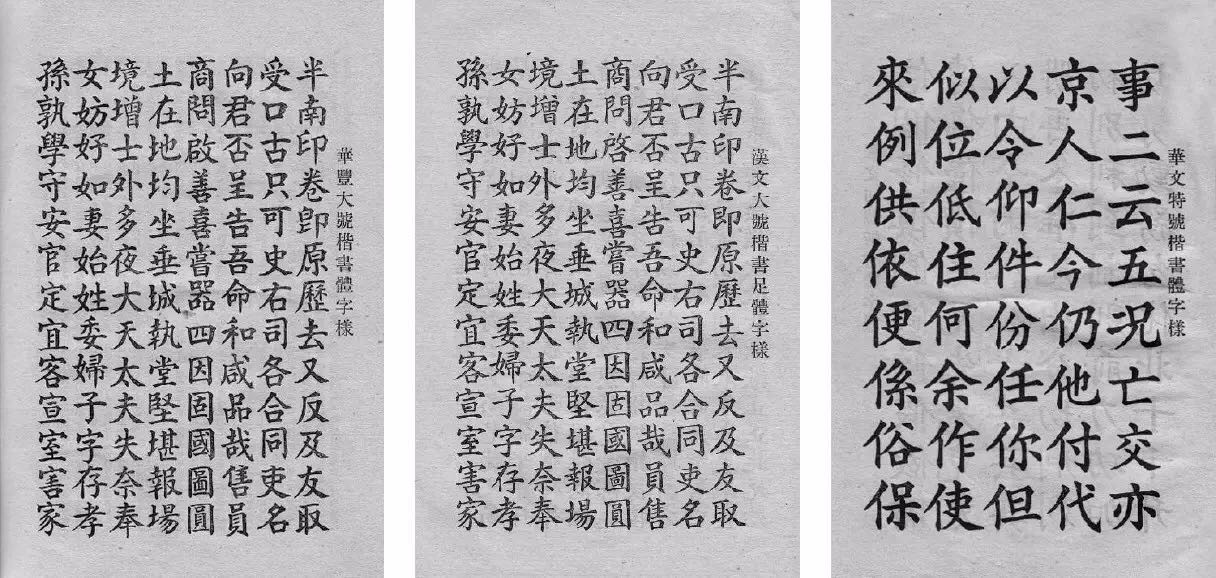 華豐大號楷書體字樣
半南印卷卽原歷去又反及友取
受口古只可史右司各合同吏名
向君否呈告吾命和咸品哉售員
商問啟善喜嘗器四因固國圖圓
土在地均坐垂城執堂堅堪報場
境增士外多夜大天太夫失奈奉
女妨好如妻始姓委婦子字存孝
孫孰學守安官定宜客宣室害家
漢文大號楷書足體字樣
半南印卷即原歷去又反及友取
受口古只可史右司各合同吏名
向君否呈告吾命和咸品哉員售
商問啓善喜嘗器四因固國圖圓
土在地均坐垂城執堂堅堪報場
境增士外多夜大天太夫失奈奉
女妨好如妻始姓委婦子字存孝
孫孰學守安官定宜客宣室害家
華文特號楷書體字樣
事二云五況亡交亦
京人仁今仍他付代
以令仰件份任你但
似位低住何余作使
來例供依便係俗保